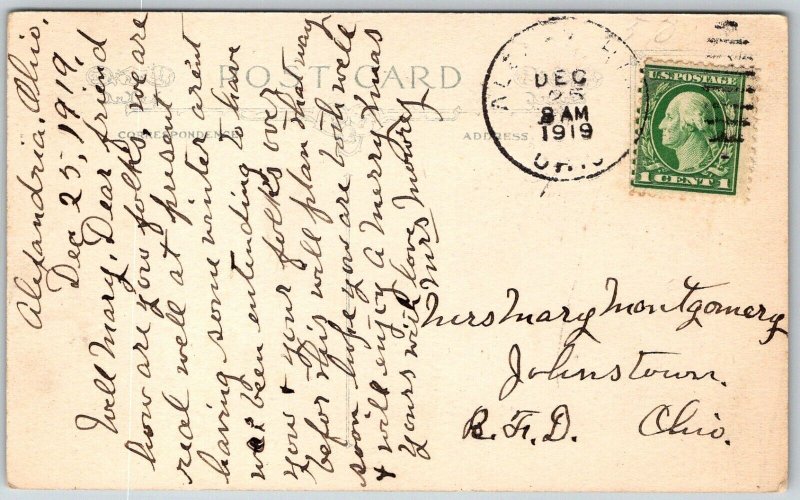 POST CARD
CORRESPONDENCE
ADDRESS
Alexandria, Ohio.
Dec 25, 1919.
Well Mary, Dear friend
how are you folks, we are
real well at present
having some winter arent
we been entending to have
you & your folks over
befor this will plan that way
soon hope you are both well
& will enjoy a Merry Xmas
yours with love
Mrs Mowrey
DEC
25
8 AM
1919
OHIO
U.S. POSTAGE
1 CENT 1
Mrs Mary Montgomery
Johnstown.
R.F.D. Ohio.